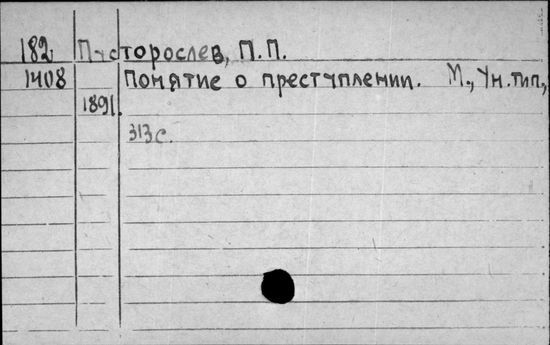 182 Пусторослев, П.П.
1408 Понятие о преступлении. М., Ун.тип.,
1891.
313 с.